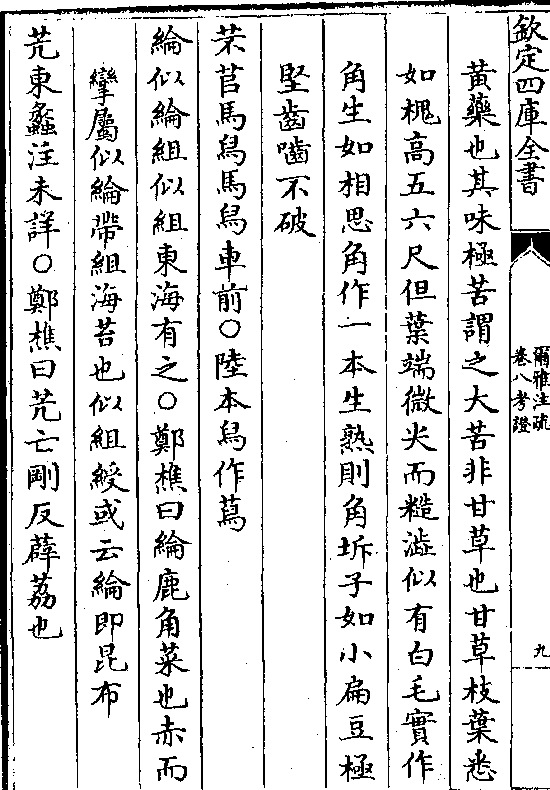 欽定四庫全書
爾雅注疏
卷八考證
九
黃藥也其味極苦謂之大苦非甘草也甘草枝葉悉
如槐高五六尺但葉端微尖而糙澁似有白毛實作
角生如相思角作一本生熟則角坼子如小扁豆極
堅齒嚙不破
芣苢馬舄馬舄車前○陸本舄作蕮
綸似綸組似組東海有之○鄭樵曰綸鹿角菜也赤而
攣屬似綸帶組海苔也似組綬或云綸即昆布
茺東蠡注未詳○鄭樵曰茺亡剛反薜荔也